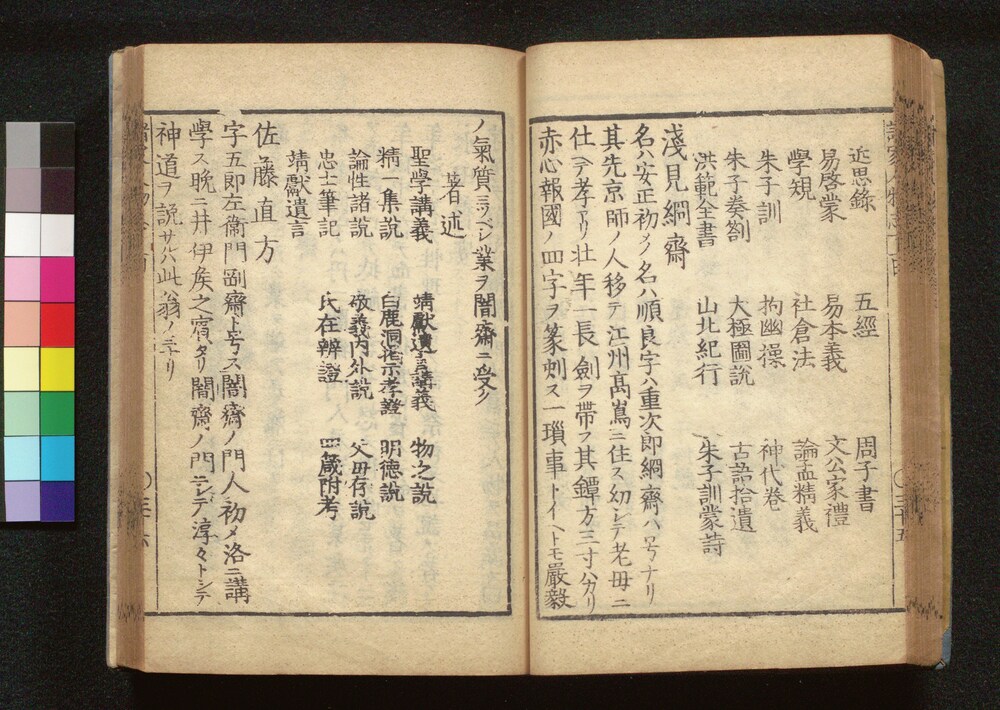 近思錄 五經 周子書
易啓蒙 易本義 文公家禮
學規 社倉法 論孟精義
朱子訓 拘幽操 神代卷
朱子奏劄 大極圖說 古語拾遺
洪範全書 山北紀行 朱子訓蒙詩
淺見絅齋
名ハ安正初メノ名ハ順良字ハ重次郎絅齋ハ号ナリ
其先京師ノ人移テ江州髙嶌ニ住ス幼ニシテ老毋ニ
仕ヘテ孝アリ壮年一長劍ヲ帶フ其鐔方三寸ハカリ
赤心報國ノ四字ヲ篆刺ス一瑣事トイヘトモ嚴毅
ノ氣質ミツベシ業ヲ闇齋ニ受ク
著述
聖學講義 靖獻遺言講義 物之說
精一集說 白鹿洞揭示考證 明德說
論性諸說 敬義內外說 父毋存說
忠士筆記 氏族辨證 四箴附考
靖獻遺言
佐藤直方
字五郎左衞門剛齋ト号ス闇齋ノ門人初メ洛ニ講
學ス晩ニ井伊矦之賓タリ闇齋ノ門ニシテ淳々トシテ
神道ヲ說サルハ此翁ノミナリ